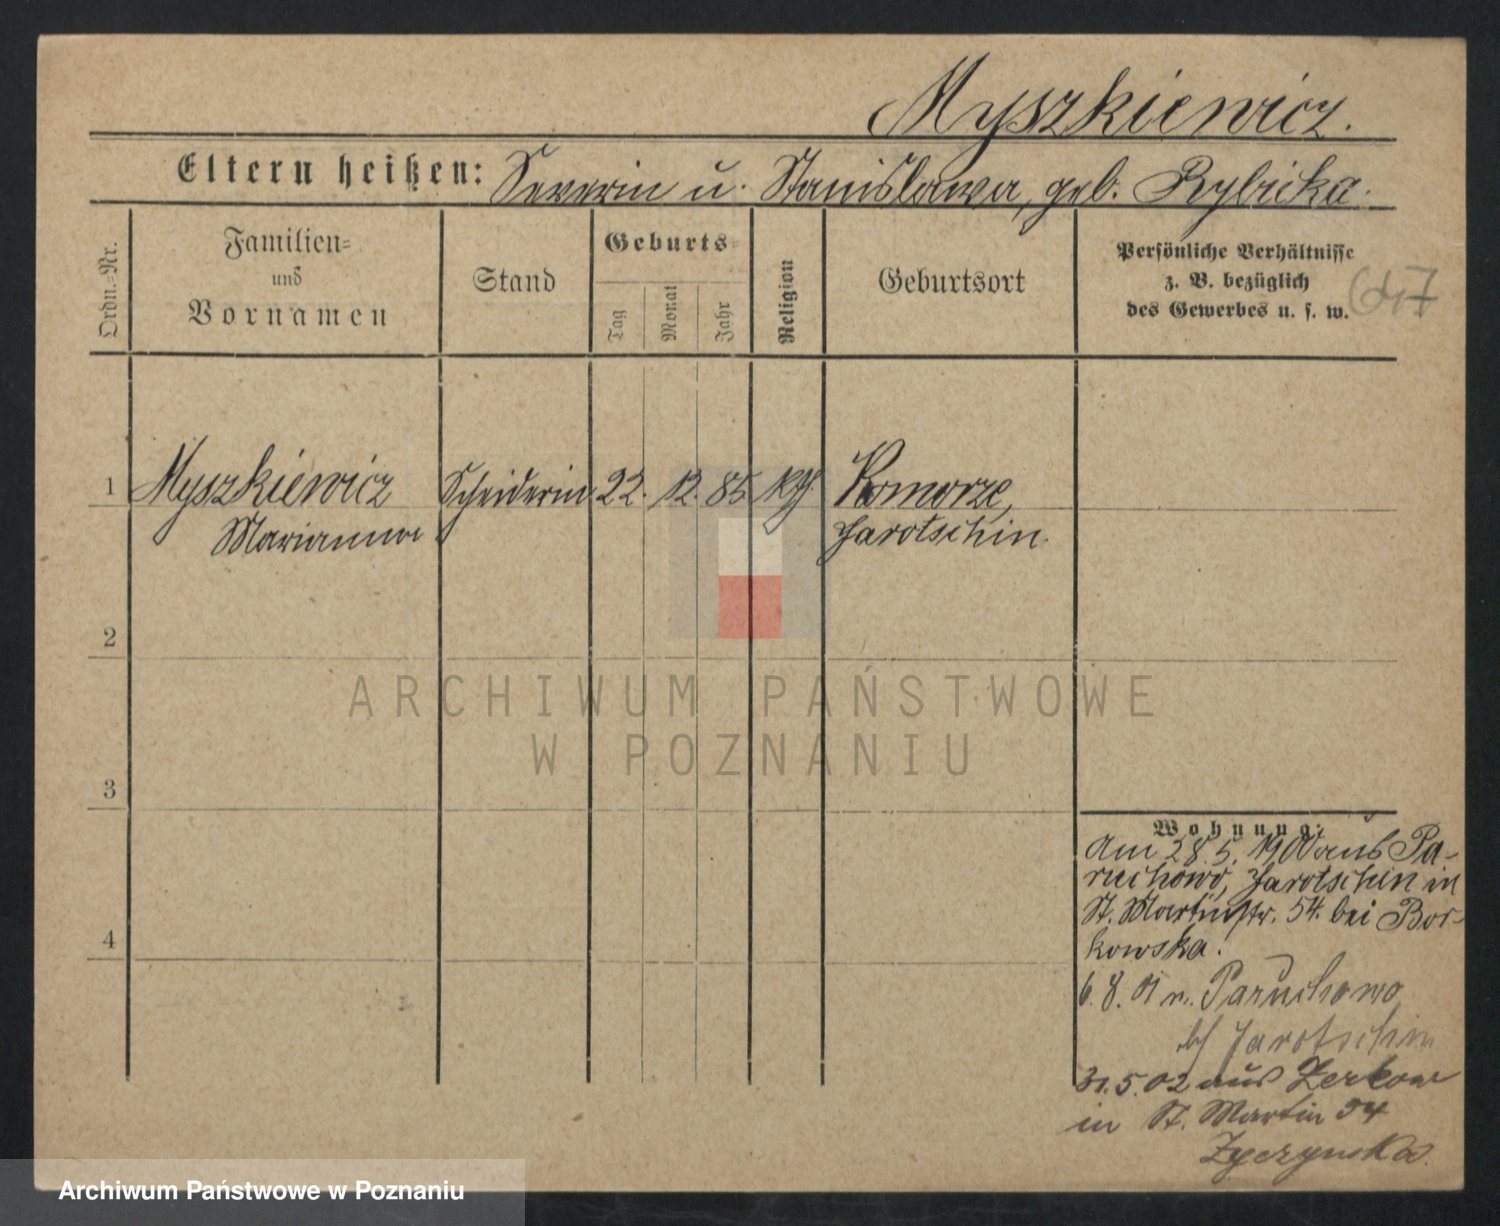 Myszkiewicz.
Eltern heißen: Severin u. Stanislawa, geb. Rybicka.
Ordn.-Nr.
Familien-
und
Vornamen
Stand
Geburts-
Tag
Monat
Jahr
Religion
Geburtsort
Persönliche Verhältnisse
z. B. bezüglich
des Gewerbes u. s. w.
1 Myszkiewicz Scheiderin 22. 12. 85 kth. Komorze,
Marianna Jarotschin.
2
ARCHIWUM PAŃSTWOWE
W POZNANIU
3
Wohnung:
Am 28. 5. 1900 aus Pa-
ruchowo, Jarotschin in
St. Martinstr. 54. bei Bor-
kowska.
4
6. 8. 01 n. Paruchowo
Jarotschin
31. 5. 02 aus Zerkow
in St. Martin 54
Zyczynska.
Archiwum Państwowe w Poznaniu